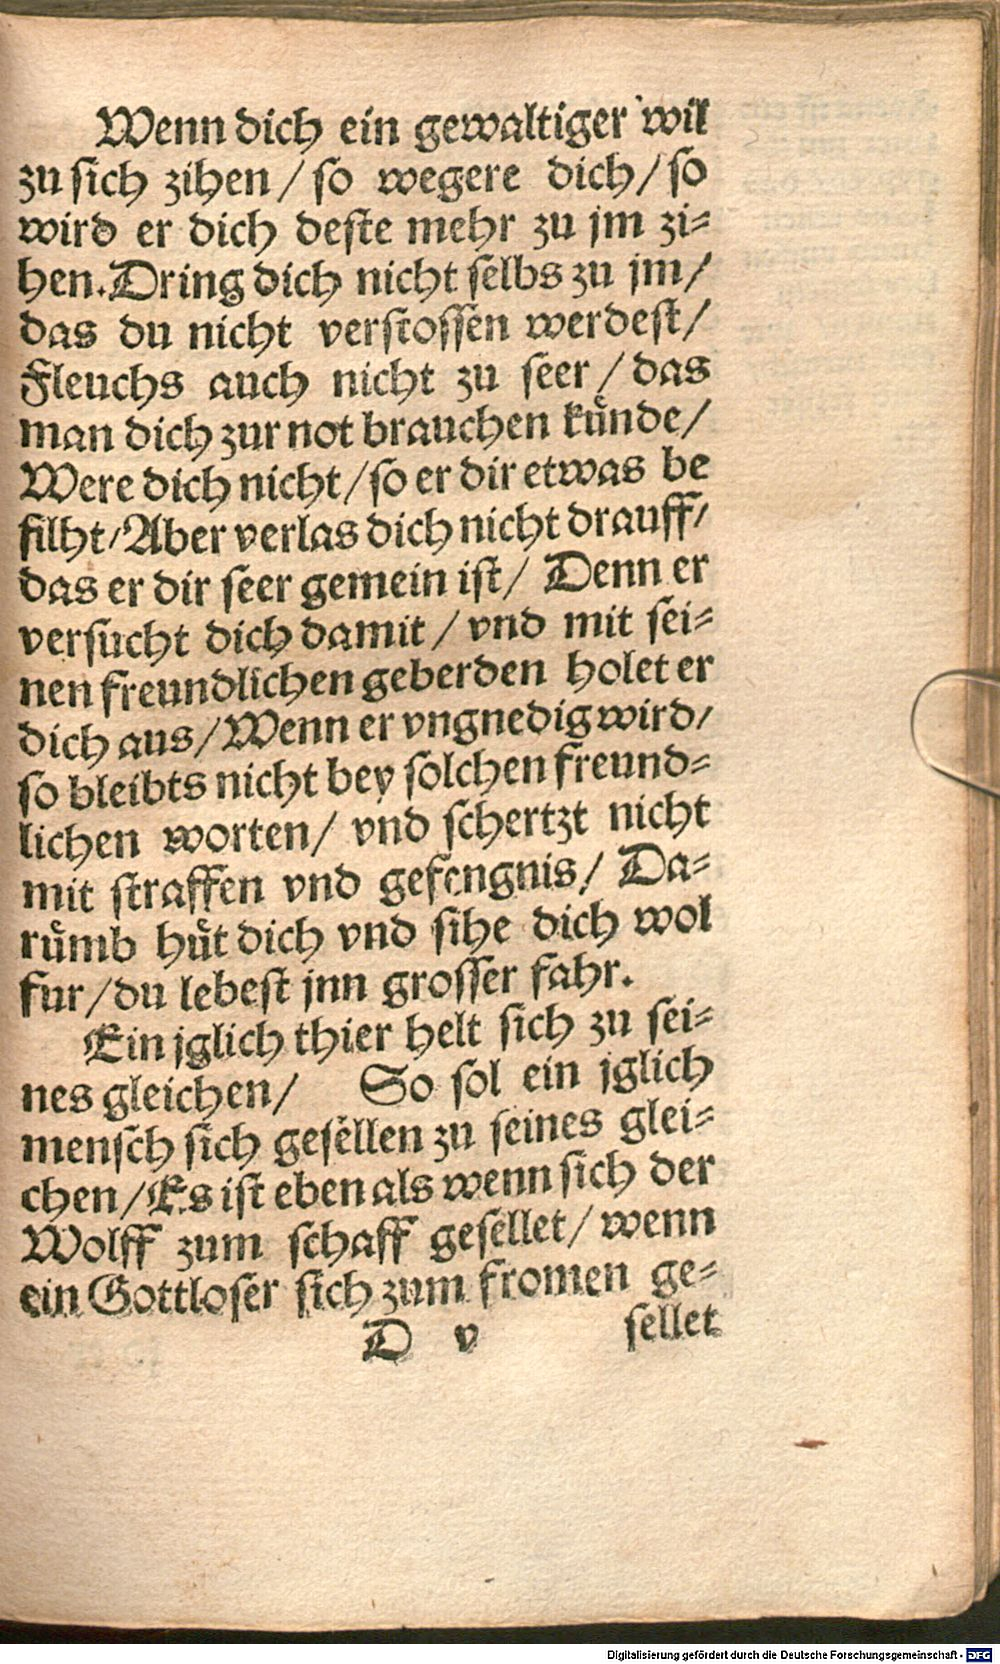 Wenn dich ein gewaltiger wil
zu sich zihen / so wegere dich / so
wird er dich deste mehr zu jm zi⸗
hen. Dring dich nicht selbs zu jm /
das du nicht verstossen werdest /
Fleuchs auch nicht zu seer / das
man dich zur not brauchen kuͤnde /
Were dich nicht / so er dir etwas be
filht / Aber verlas dich nicht drauff /
das er dir seer gemein ist / Denn er
versucht dich damit / vnd mit sei⸗
nen freundlichen geberden holet er
dich aus / Wenn er vngnedig wird /
so bleibts nicht bey solchen freund⸗
lichen worten / vnd schertzt nicht
mit straffen vnd gefengnis / Da⸗
ruͤmb huͤt dich vnd sihe dich wol
fur / du lebest jnn grosser fahr.
Ein jglich thier helt sich zu sei⸗
nes gleichen / So sol ein jglich
mensch sich gesellen zu seines glei⸗
chen / Es ist eben als wenn sich der
Wolff zum schaff gesellet / wenn
ein Gottloser sich zum fromen ge⸗
D v sellet
Digitalisierung gefördert durch die Deutsche Forschungsgemeinschaft - DFG